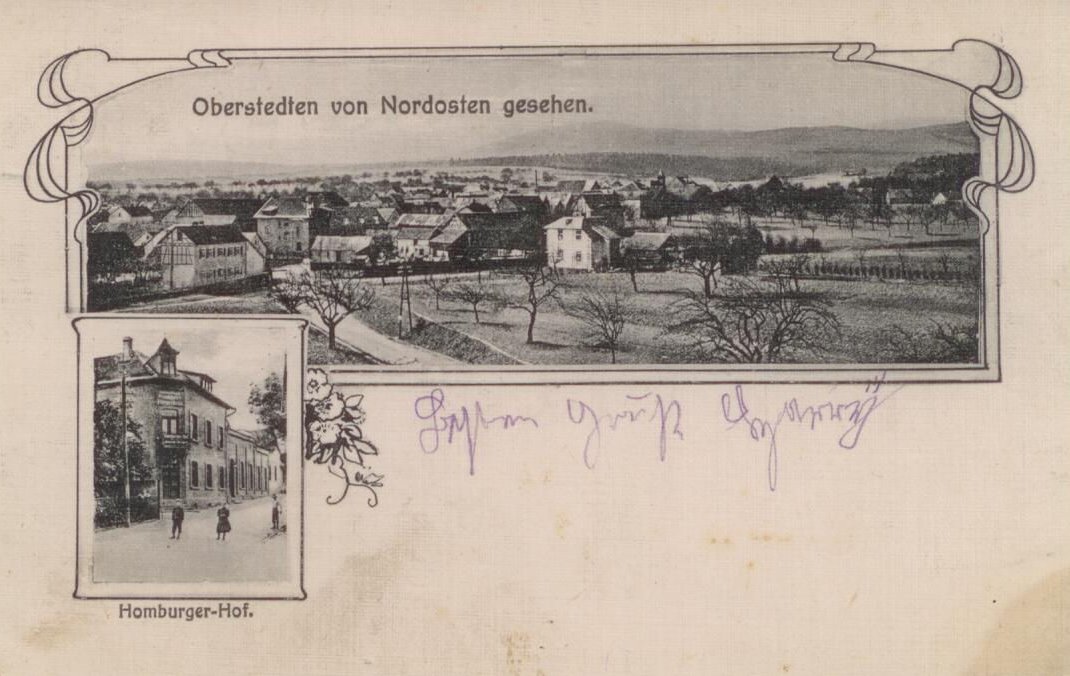 Oberstedten von Nordosten gesehen.
Besten Gruß
Homburger-Hof.